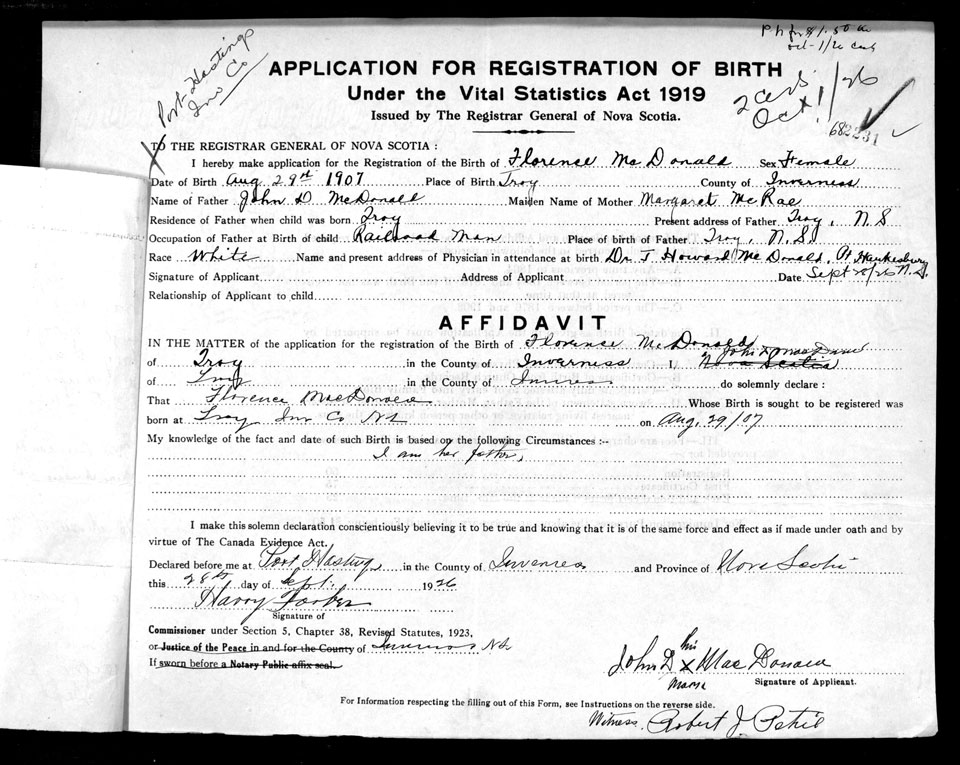 Pd for $1.50
oct-1/26
Port Hastings
Inv Co
2 certs
Oct 1/26
682231
APPLICATION FOR REGISTRATION OF BIRTH
Under the Vital Statistics Act 1919
Issued by The Registrar General of Nova Scotia.
TO THE REGISTRAR GENERAL OF NOVA SCOTIA :
I hereby make application for the Registration of the Birth of Florence McDonald Sex Female
Date of Birth Aug 29th 1907 Place of Birth Troy County of Inverness
Name of Father John D. McDonald Maiden Name of Mother Margaret McRae
Residence of Father when child was born Troy Present address of Father Troy, N S
Occupation of Father at Birth of child Railroad Man Place of birth of Father Troy, N.S.
Race White Name and present address of Physician in attendance at birth Dr. J Howard McDonald, Pt Hawkesbury N.S.
Signature of Applicant Address of Applicant Date Sept 28/26
Relationship of Applicant to child
AFFIDAVIT
IN THE MATTER of the application for the registration of the Birth of Florence McDonald
of Troy in the County of Inverness I, Nova Scotia John D MacDonald
of Troy in the County of Inverness do solemnly declare :
That Florence MacDonald Whose Birth is sought to be registered was
born at Troy Inv Co NS on Aug. 29/07
My knowledge of the fact and date of such Birth is based on the following Circumstances :-
I am her father,
I make this solemn declaration conscientiously believing it to be true and knowing that it is of the same force and effect as if made under oath and by
virtue of The Canada Evidence Act.
Declared before me at Port Hastings in the County of Inverness and Province of Nova Scotia
this 28th day of Sept. 1926
Harry Forbes
Signature of
Commissioner under Section 5, Chapter 38, Revised Statutes, 1923,
or Justice of the Peace in and for the County of Inverness NS
If sworn before a Notary Public affix seal.
John D his X mark MacDonald
Signature of Applicant.
For Information respecting the filling out of this Form, see Instructions on the reverse side.
Witness Robert J.